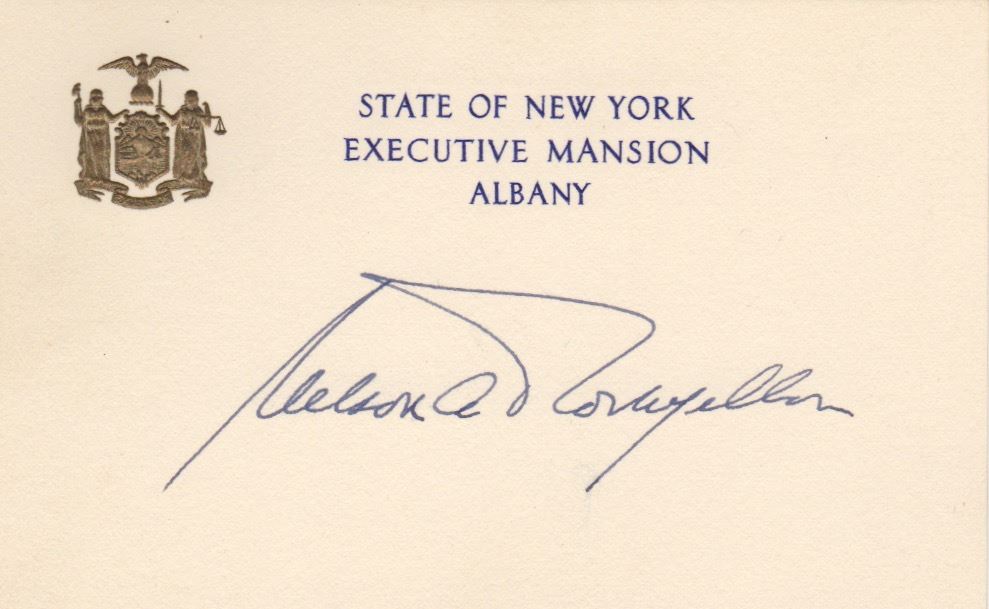 STATE OF NEW YORK
EXECUTIVE MANSION
ALBANY
Nelson A Rockefeller